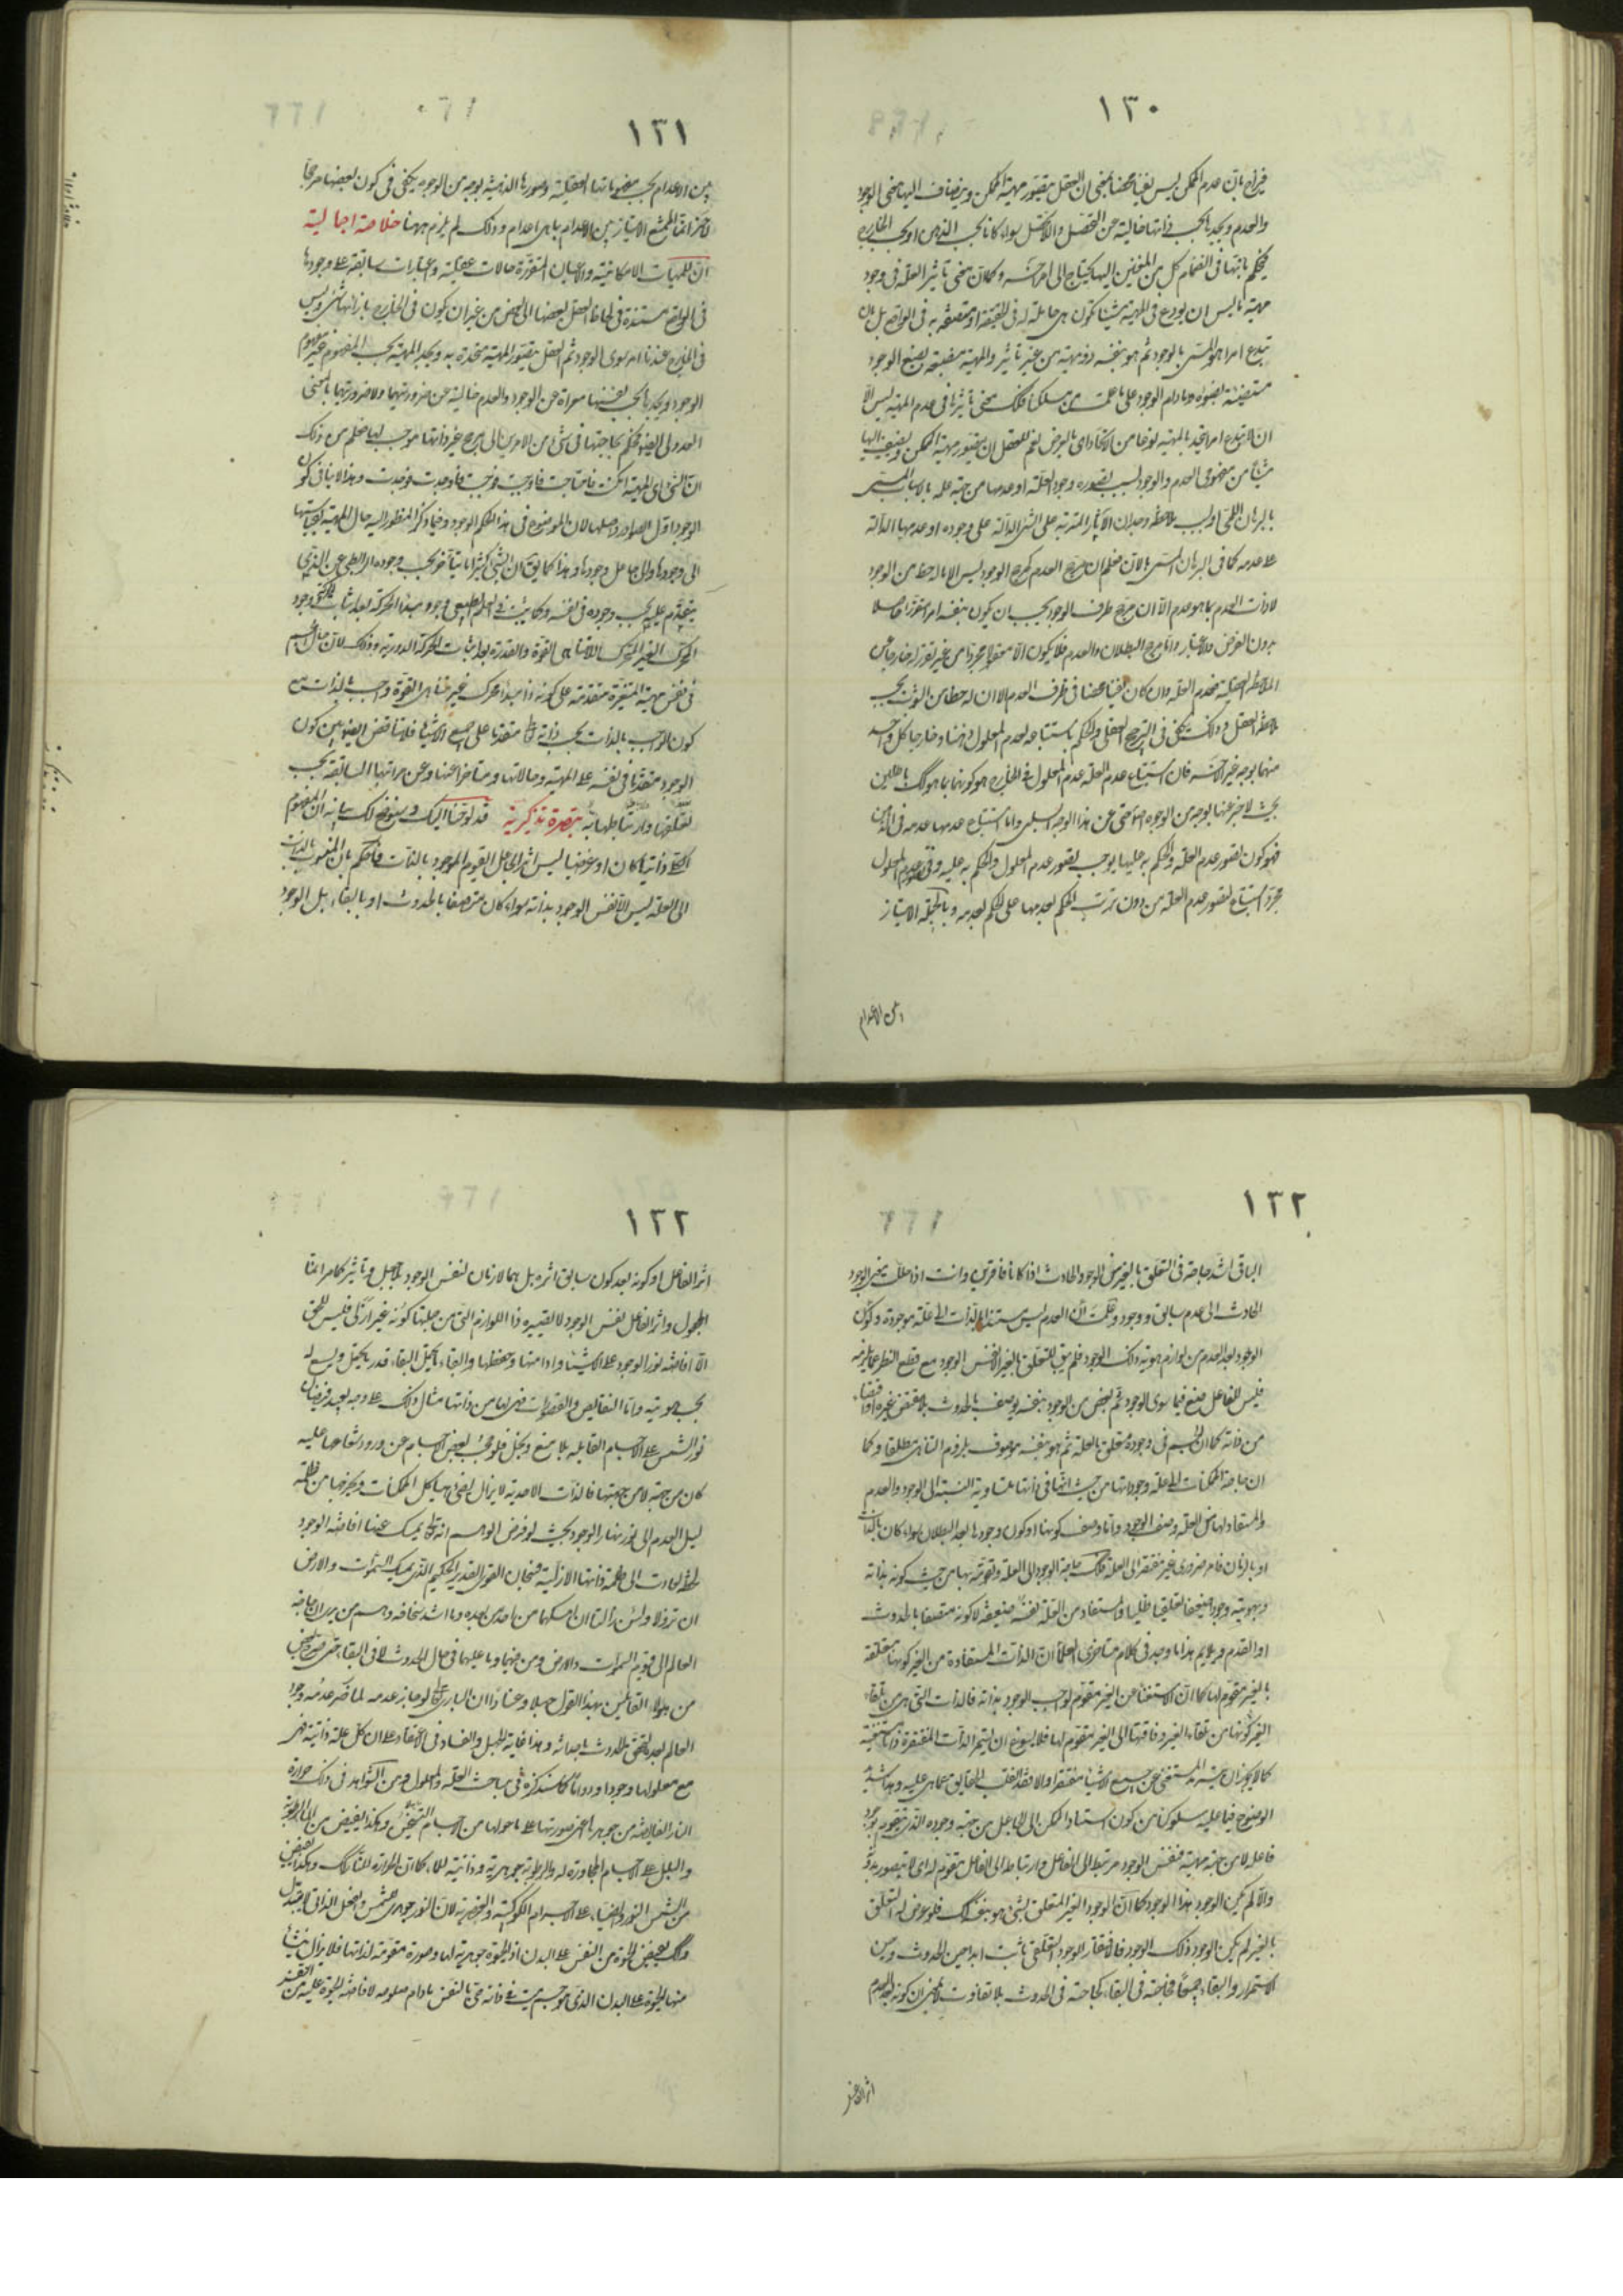 ١٣٠
فيزاح بان عدم الممكن ليس نفيا محضا بمعنى ان العقل يتصور مهية الممكن وينضاف اليها معنى الوجود
والعدم ويجدها بحسب ذاتها خالية عن التحصل واللاتحصل سواء كانا بحسب الذهن او بحسب الخارج
فيحكم بانها في انضمام كل من المعنيين اليها يحتاج الى امر آخر وكما ان معنى تأثير العلة في وجود
مهية ما ليس ان يودع في المهية شيئا تكون هي حاملة له في الحقيقة او متصفة به في الواقع بل بان
تبدع امرا هو المسمى بالوجود ثم هو بنفسه ذو مهية من غير تأثير والمهية منصبغة بصبغ الوجود
مستضيئة بضوئه ما دام الوجود على ما علمت من مسلكنا فكك معنى تأثيرها في عدم المهية ليس الا
ان لا تبدع امرا يتحد بالمهية نوعا من الاتحاد اى بالعرض نعم للعقل ان يتصور مهية الممكن ويضيف اليها
شيئا من مفهومي العدم والوجود بسبب تصوره وجود العلة او عدمها من جهة علله بالاسباب المسمى
بالبرهان اللمى او بسبب ملاحظة وجدان الآثار المترتبة على الشئ الدالة على وجوده او عدمها الدالة
على عدمه كما في البرهان المسمى بالان فعلم ان مرجح العدم كمرجح الوجود ليس الا ما له حظ من الوجود
لا ذات العدم بما هو عدم الا ان مرجح طرف الوجود يجب ان يكون بنفسه امرا متقررا حاصلا
بدون الفرض والاعتبار واما مرجح البطلان والعدم فلا يكون الا معقولا مجردا من غير تقرر له خارجا عن
الملاحظة العقلية فعدم العلة وان كان نفيا محضا في ظرف العدم الا ان له حظا من الثبوت بحسب
ملاحظة العقل وذلك يكفى في الترجيح العقلي والحكم باستتباعه لعدم المعلول ذهنا وخارجا كل واحد
منهما بوجه غير الآخر فان استتباع عدم العلة عدم المعلول في الخارج هو كونهما بما هو كك باطلين
بحيث لا خبر عنهما بوجه من الوجوه اصلا حتى عن هذا الوجه السلبى واما استتباع عدمها عدمه في الذهن
فهو كون تصور عدم العلة والحكم به عليها يوجب تصور عدم المعلول والحكم به عليه وفي تصور عدم المعلول
مجرد استتباع تصور عدم العلة من دون ترتب الحكم بعدمها على الحكم بعدمه وبالجملة الامتياز
بين الاعدام
١٣١
بين الاعدام بحسب مفهوماتها العقلية وصورها الذهنية بوجه من الوجوه يكفى في كون بعضها مرجحا
لآخر انما الممتنع الامتياز بين الاعدام بما هى اعدام وذلك لم يلزم ههنا خلاصة اجمالية
ان للمهيات الامكانية والاعيان المتقررة حالات عقلية واعتبارات سابقة على وجودها
في الواقع مستندة في لحاظ العقل بعضها الى بعض من غير ان يكون في الخارج بازائها شئ وليس
في الخارج عندنا امر سوى الوجود ثم العقل يتصور المهية متحدة به ويجد المهية بحسب المفهوم غير مفهوم
الوجود ويجدها بحسب نفسها معراة عن الوجود والعدم خالية عن ضرورتهما ولا ضرورتهما بالمعنى
العدولى ايضا فيحكم بحاجتها في شئ من الامرين الى مرجح غير ذاتها موجب لها فعلم من ذلك
ان الشئ اى المهية امكنت فاحتاجت فاوجبت فوجبت فاوجدت فوجدت وهذا لا ينافى كون
الوجود اول الصوادر واصلها لان الموضوع في هذا الحكم الوجود وفيما ذكر المنظور اليه حال المهية بقياسها
الى وجودها والى جاعل وجودها وهذا كما يق ان الشئ كثيرا ما يتأخر بحسب وجوده الرابطى عن الذى
يتقدم عليه بحسب وجوده في نفسه وكما يثبت في العلم الطبيعى وجود مبدء الحركة بعد اثبات الحركة ووجود
المحرك الغير المتحرك اللامتناهى القوة والقدرة بعد اثبات الحركة الدورية وذلك لان حال الجسم
في نفس مهية المتغيرة متقدمة على كونه ذا مبدء محرك غير متناهى القوة واجب بالذات مع
كون الواجب بالذات بحسب ذاته تع متقدما على جميع الاشياء فلا تناقض ايضا بين كون
الوجود متقدما في نفسه على المهية وحالاتها ومتأخرا عنها وعن مراتبها السابقة بحسب
تعلقها وارتباطها به تبصرة تذكرية قد لوحنا اليك وسنوضح لك بيانه ان المفهوم
الكلى ذاتيا كان او عرضيا ليس اثرا لجاعل القيوم الموجود بالذات فاحكم بان المنسوب بالذات
الى العلة ليس الا نفس الوجود بذاته سواء كان متصفا بالحدوث او بالبقاء بل الوجود
١٣٢
الباقى اشد حاجة في التعلق بالغير من الوجود الحادث اذا كانا فاقرين وانت اذا حللت معنى الوجود
الحادث الى عدم سابق ووجود وعلمت ان العدم ليس مستندا بالذات الى علة موجودة وكون
الوجود بعد العدم من لوازم هوية ذلك الوجود فلم يبق للتعلق بالغير الا نفس الوجود مع قطع النظر عما يلزمه
فليس للفاعل صنع فيما سوى الوجود ثم بعض من الوجود بنفسه يوصف بالحدوث بلا مقتض غيره واقتضاء
من ذاته كما ان الجسم في وجوده متعلق بالعلة ثم هو بنفسه موصوف بلزوم التناهى مطلقا وكما
ان حاجة الممكنات الى علة وجوداتها من حيث انها في ذاتها متساوية النسبة الى الوجود والعدم
والمستفاد لها من العلة وصف الوجود واما وصف كونها او كون وجودها بعد البطلان سواء كان بالذات
او بالزمان فامر ضرورى غير مفتقر الى العلة فكك حاجة الوجود الى العلة وتقومه بها من حيث كونه بذاته
وبهويته وجودا ضعيفا تعلقيا ظليا والمستفاد من العلة نفسه ضعيفة لا كونه متصفا بالحدوث
او القدم ومما يلائم هذا ما وجد في كلام متأخرى العلماء ان الذات المستفادة من الغير كونها متعلقة
بالغير مقوم لها كما ان الاستغناء عن الغير مقوم لواجب الوجود بذاته فالذات التى هى من تلقاء
الغير كونها من تلقاء الغير وفاقتها الى الغير مقوم لها فلا يسوغ ان يستمر الذات المفتقرة ذاتا مستغنية
كما لا يجوز ان يستمر المستغنى عن جميع الاشياء مفتقرا والا فقد انقلب الحقايق عما هى عليه وهذا شديد
الوضوح فيما عليه سلوكنا من كون استناد الممكن الى الجاعل من جهة وجوده الذى يتقوم بوجود
فاعله لا من جهة مهيته فنفس الوجود مرتبط الى الفاعل وارتباطه الى الفاعل مقوم له اى لا يتصور بدونه
والا لم يكن الوجود هذا الوجود كما ان الوجود الغير المتعلق بشئ هو بنفسه كك فلو عرض له التعلق
بالغير لم يكن الوجود ذلك الوجود فالافتقار للوجود التعلقى ثابت ابدا حين الحدوث وحين
الاستمرار والبقاء جميعا فحاجته في البقاء كحاجته في الحدوث بلا تفاوت لا بمعنى ان كونه بعد العدم
اثر الفاعل
١٣٣
اثر الفاعل او كونه بعد كون سابق اثره بل هما لازمان لنفس الوجود بلا جعل وتأثير كما مر انما
المجعول واثر الفاعل نفس الوجود لا تصييره ذا اللوازم التى من جملتها كونه غير ازلى فليس للحق
الا افاضة نور الوجود على الاشياء وادامتها وحفظها والبقاء ما يحتمل البقاء قدر ما يحتمل ويسع له
بحسب هويته واما النقايص والقصورات فهى لها من ذاتها مثال ذلك على وجه بعيد فيضان
نور الشمس على الاجسام القابلة بلا منع وبخل فلو حجب بعض اجسام عن ورود شعاعها عليه
كان من جهته لا من جهتها فالذات الاحدية لا يزال يضئ هياكل الممكنات ويخرجها من ظلمة
ليل العدم الى نور نهار الوجود بحيث لو فرض الوهم انه تع يمسك عنها افاضة الوجود
لحظة لعادت الى ظلمة ذاتها الازلية فسبحان القوى القدير الحكيم الذى يمسك السموات والارض
ان تزولا ولئن زالتا ان امسكهما من احد من بعده وما اشد سخافة وهم من يرى ان حاجة
العالم الى قيوم السموات والارض ومن فيهما وما عليهما في حال الحدوث لا في البقاء حتى صرح بعض
من هؤلاء القائلين بهذا القول جهلا وعنادا ان البارى تع لو جاز عدمه لما ضر عدمه وجود
العالم بعد تحقق الحدوث باحداثه وهذا غاية الجهل والفساد في الاعتقاد على ان كل علة ذاتية فهى
مع معلولها وجودا ودواما كما سنذكره في مباحث العلة والمعلول ومن الشواهد في ذلك حرارة
النار الفايضة من جوهرها اعنى صورتها على ما حولها من الاجسام التسخين وهكذا يفيض من الماء الرطوبة
والبلل على الاجسام المجاورة له والرطوبة جوهرية وذاتية للماء كما ان الحرارة للنار كك وهكذا يفيض
من الشمس النور والضياء على الاجرام الكوكبية والعنصرية لان النور جوهرى للشمس والفعل الذاتى لا يتبدل
وكك يفيض الحيوة من النفس على البدن اذ الحيوة جوهرية لها وصورة مقومة لذاتها فلا يزال ينشأ
منها الحيوة على البدن الذى هو جسم ميت في ذاته حى بالنفس ما دام صلوحه لافاضة الحيوة عليه من النفس